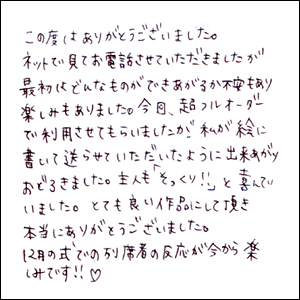 この度はありがとうございました。
ネットで見てお電話させていただきましたが
最初はどんなものができあがるか不安もあり
楽しみもありました。今回、超フルオーダー
で利用させてもらいましたが、私が絵に
書いて送らせていただいたように出来あがり
おどろきました。主人も「そっくり!!」と喜んで
いました。とても良い作品にして頂き
本当にありがとうございました。
12月の式での列席者の反応が今から楽
しみです!!♡